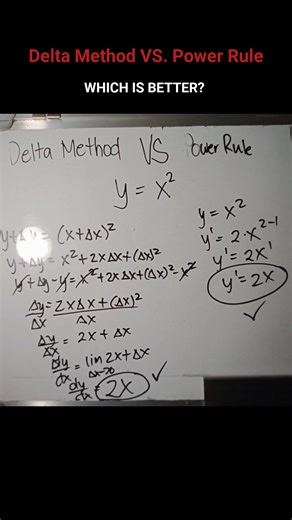 Delta Method VS. Power Rule
WHICH IS BETTER?
Delta Method VS Power Rule
y = x²
y+Δy = (x+Δx)²
y+Δy = x²+2xΔx+(Δx)²
y+Δy-y=x²+2xΔx+(Δx)²-x²
Δy/Δx = 2xΔx+(Δx)²/Δx
Δy/Δx = 2x+Δx
dy/dx = lim Δx→0 2x+Δx
dy/dx = 2x
y = x²
y' = 2·x²⁻¹
y' = 2x¹
y' = 2x